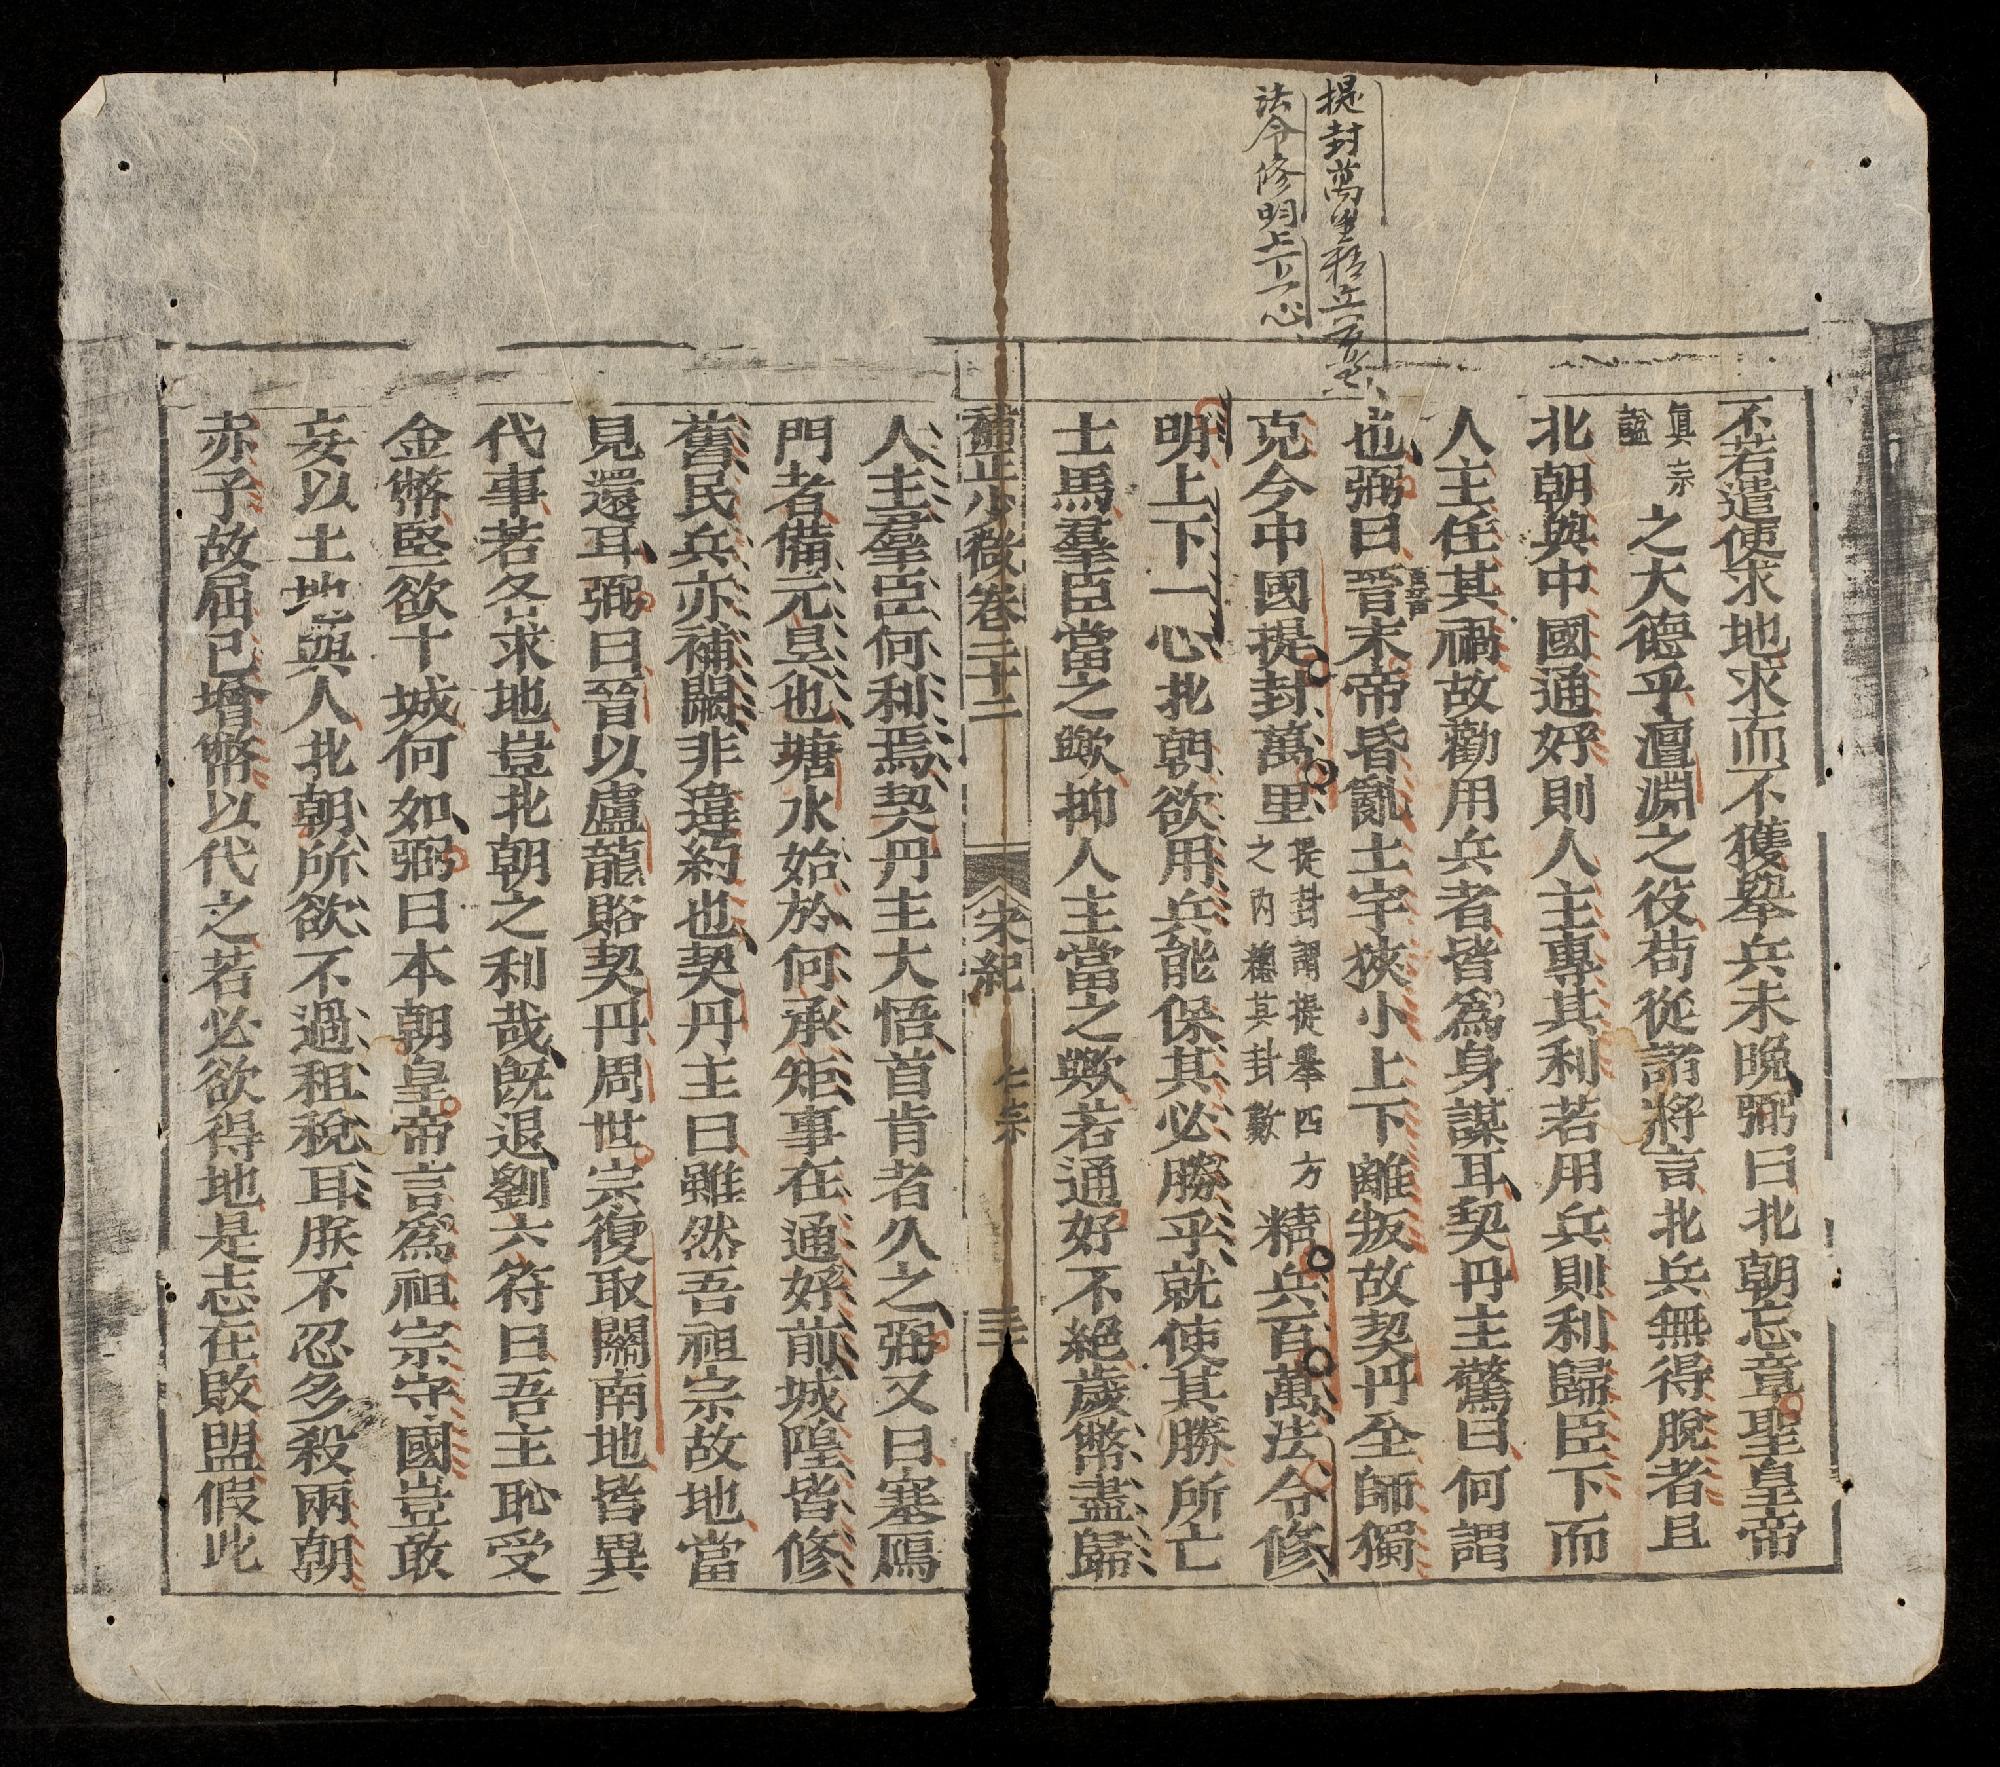 提封萬里精立百萬
法令修明上下一心
不若遣使求地求而不獲舉兵未晚弼曰北朝忘章聖皇帝
眞宗謚之大德乎澶淵之役苟從諸將言北兵無得脫者且
北朝與中國通好則人主專其利若用兵則利歸臣下而
人主任其禍故勸用兵者皆爲身謀耳契丹主驚曰何謂
也弼曰晉末帝昏亂土宇狹小上下離叛故契丹全師獨
克今中國提封萬里提封謂提舉四方之內總其封數精兵百萬法令修
明上下一心北朝欲用兵能保其必勝乎就使其勝所亡
士馬羣臣當之歟抑人主當之歟若通好不絕歲幣盡歸
補正少微卷二十二 宋紀 仁宗
人主羣臣何利焉契丹主大悟首肯者久之弼又曰塞鴈
門者備元昊也塘水始於何承矩事在通好前城隍皆修
舊民兵亦補闕非違約也契丹主曰雖然吾祖宗故地當
見還耳弼曰晉以盧龍賂契丹周世宗復取關南地皆異
代事若各求地豈北朝之利哉旣退劉六符曰吾主恥受
金幣堅欲十城何如弼曰本朝皇帝言爲祖宗守國豈敢
妄以土地與人北朝所欲不過租稅耳朕不忍多殺兩朝
赤子故屈已增幣以代之若必欲得地是志在敗盟假此